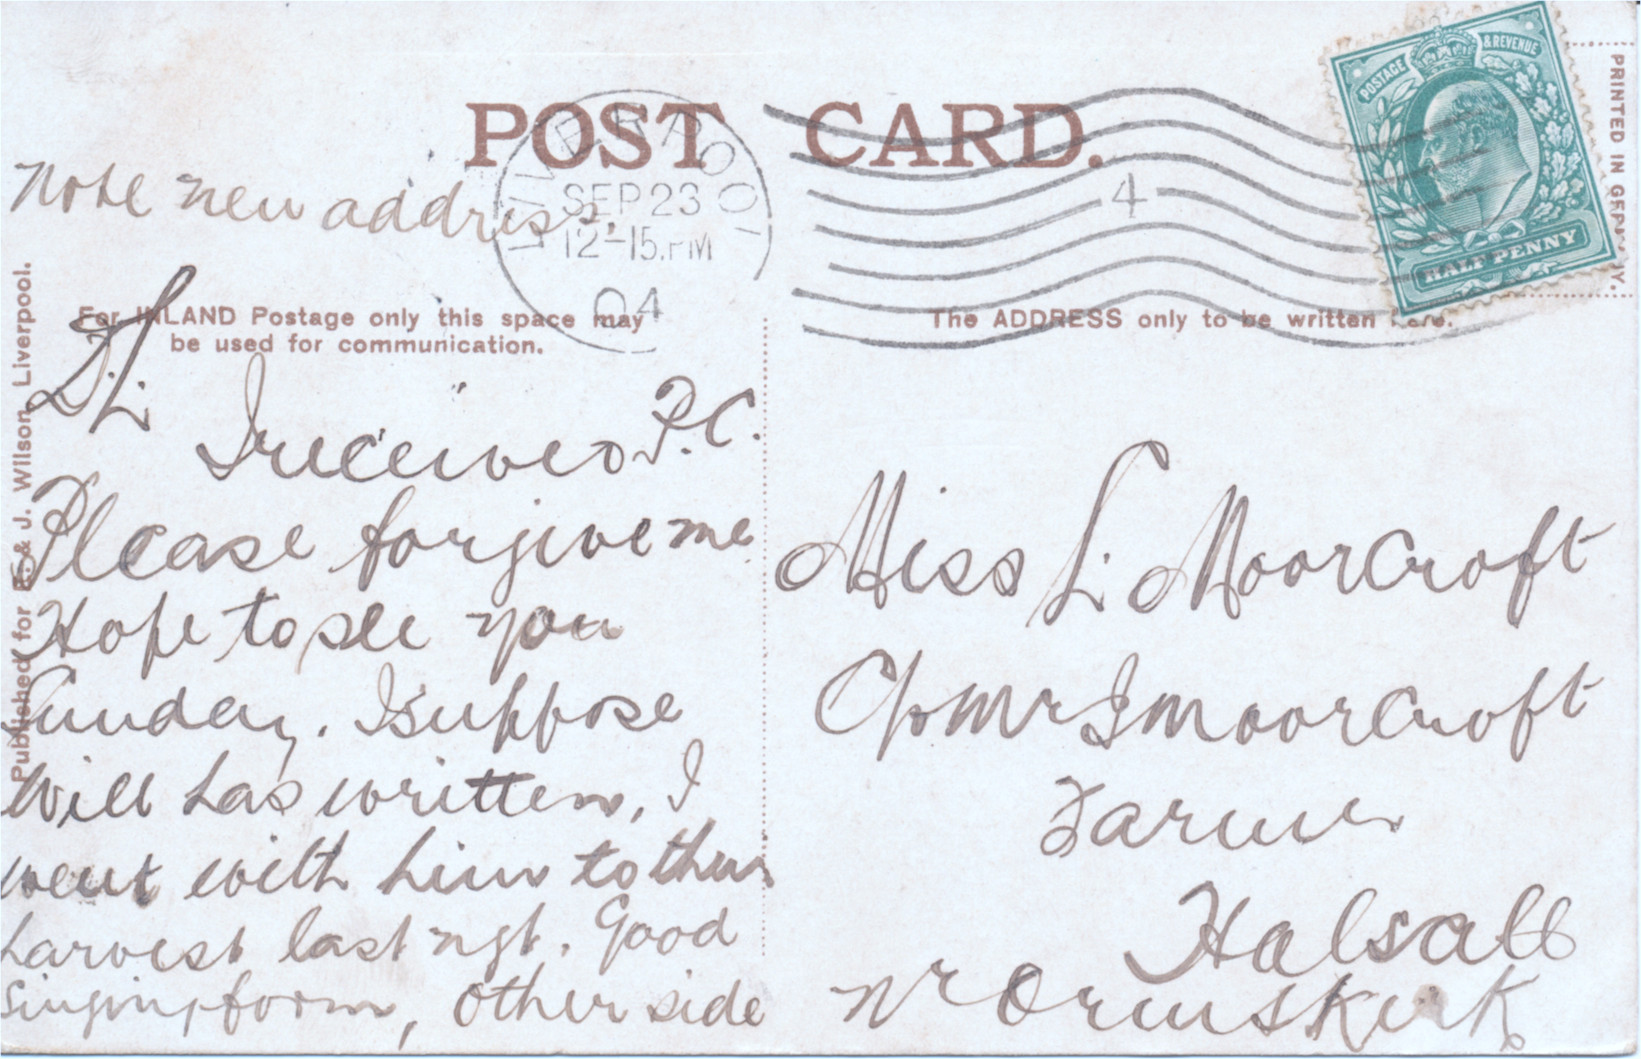 POST CARD.
POSTAGE & REVENUE
HALF PENNY
PRINTED IN
LIVERPOOL
SEP 23
12-15.PM
04
4
Note new address.
For INLAND Postage only this space may
be used for communication.
The ADDRESS only to be written
Published for E. & J. Wilson, Liverpool.
D.L.
I received P.C.
Please forgive me
Hope to see you
Sunday. I suppose
Will has written, I
went with him to their
harvest last ngt. Good
singing form, other side
Miss L. Moorcroft
C/o Mr J Moorcroft
Farmer
Halsall
Nr Ormskirk